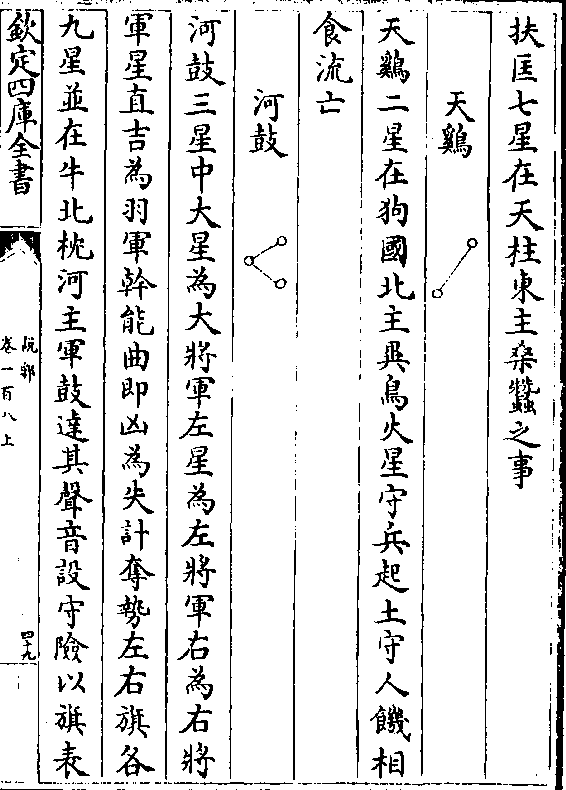 扶匡七星在天柱東主桑蠶之事
天鷄
天鷄二星在狗國北主異鳥火星守兵起土守人饑相
食流亡
河鼓
河鼓三星中大星為大將軍左星為左將軍右為右將
軍星直吉為羽軍幹能曲即凶為失計奪勢左右旗各
九星並在牛北枕河主軍鼓達其聲音設守險以旗表
欽定四庫全書
說郛
卷一百八上
四十九